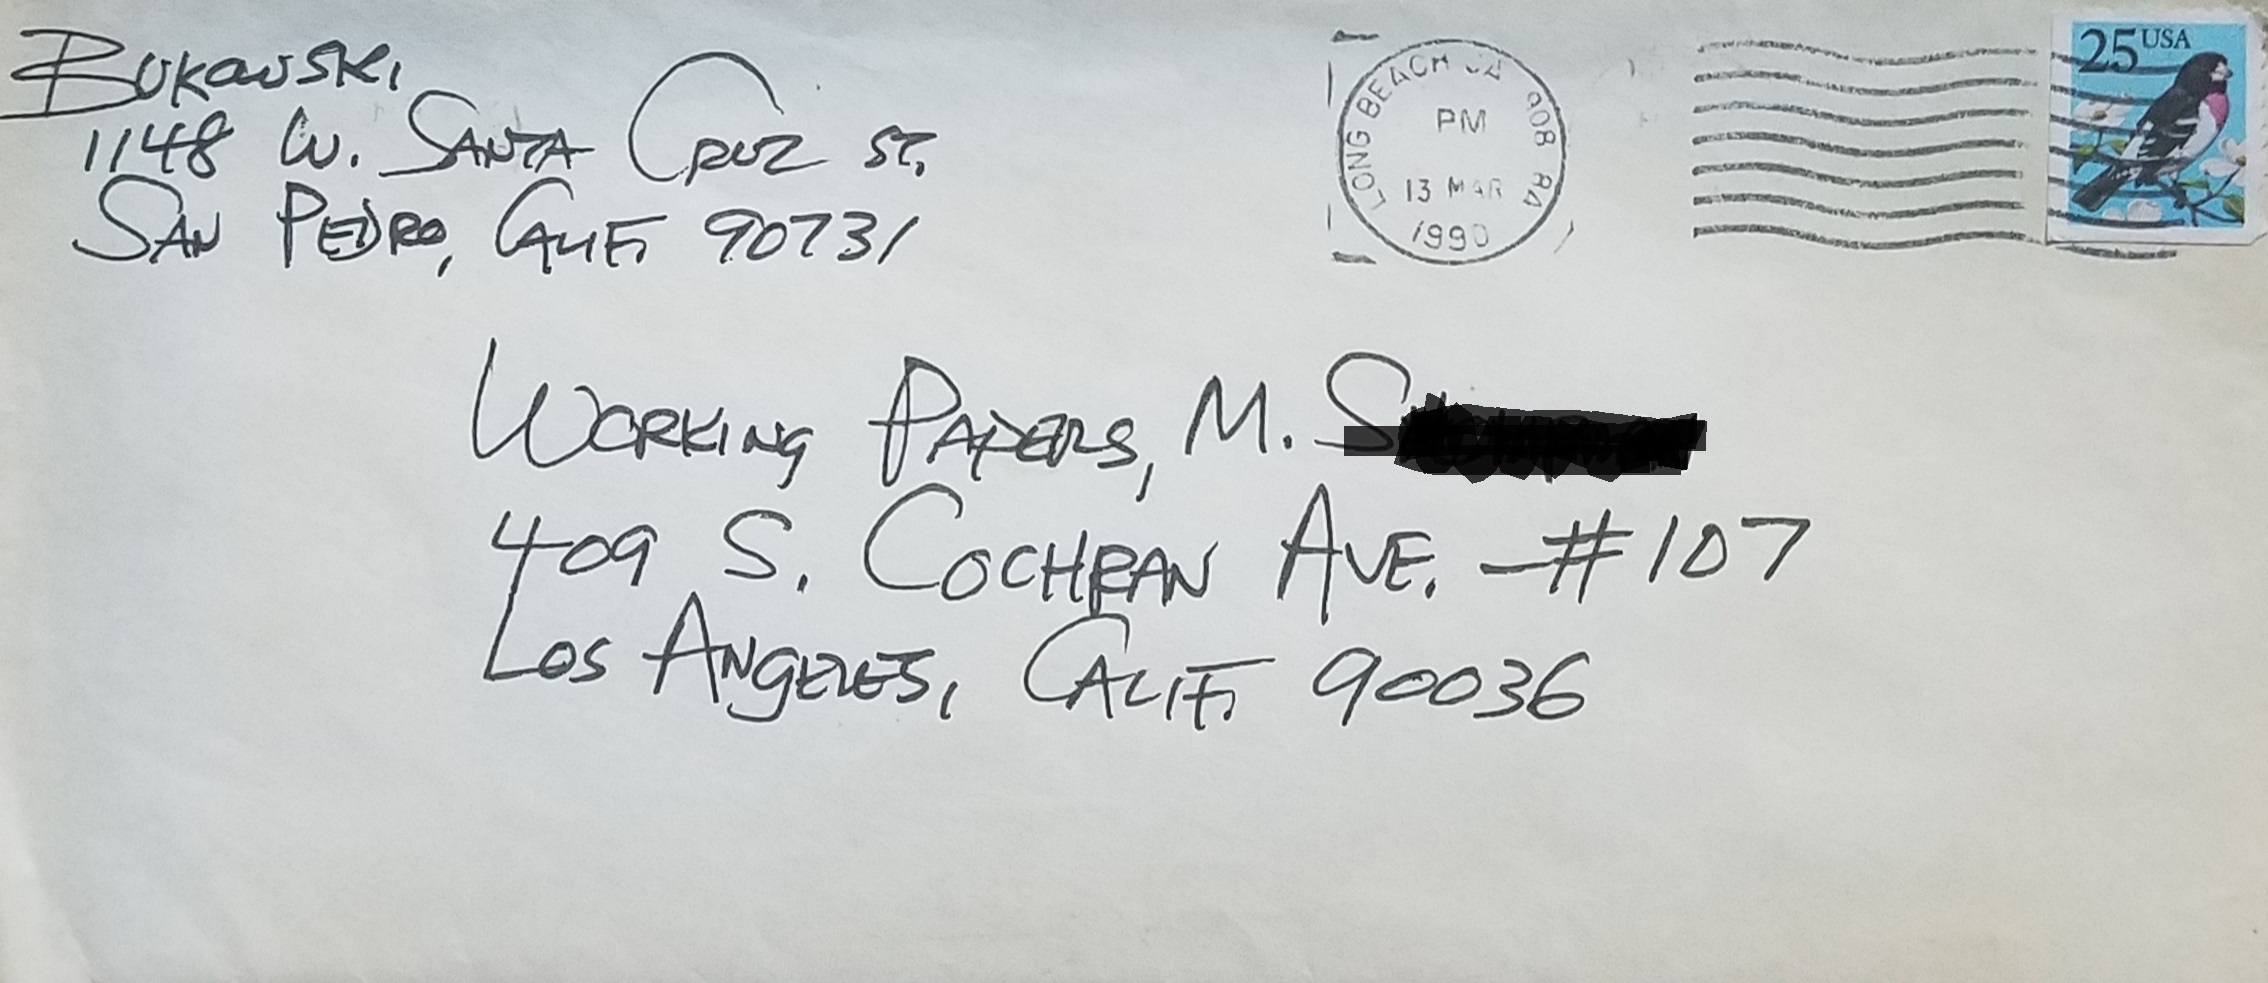 Bukowski
1148 W. Santa Cruz St.
San Pedro, Calif. 90731
LONG BEACH CA 908
PM
13 MAR
1990
25 USA
Working Papers, M. S
409 S. Cochran Ave. - #107
Los Angeles, Calif. 90036